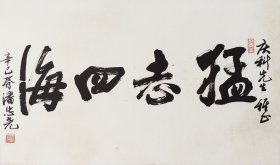 庆科先生雅正
猛志四海
辛巳春潘